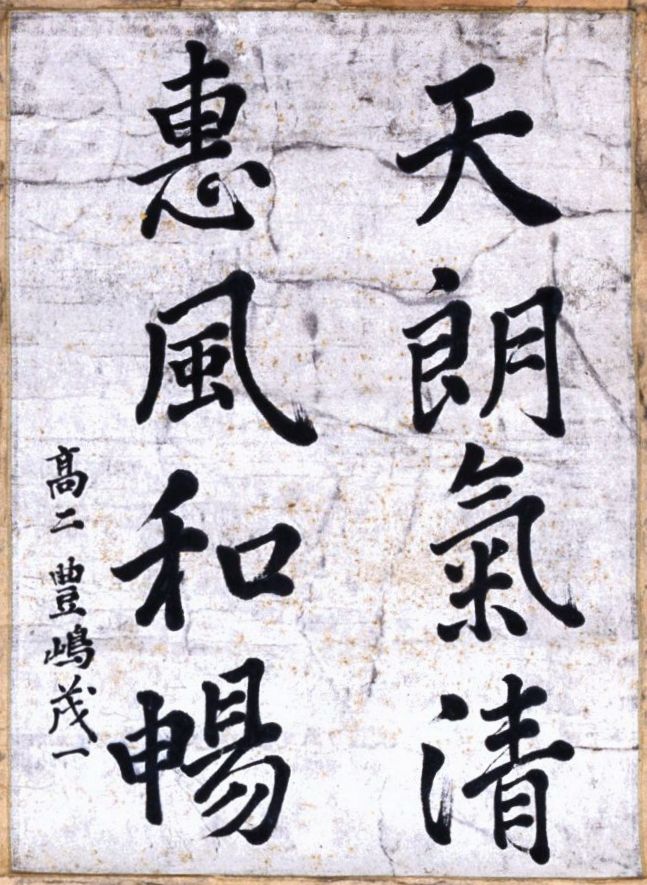 天朗氣清
惠風和暢
髙二 豊嶋茂一